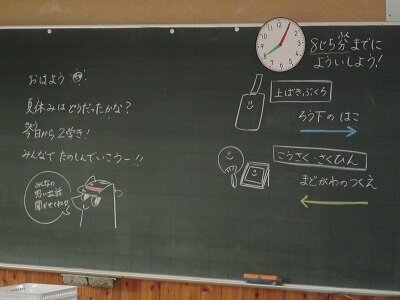 おはよう
夏休みはどうだったかな?
きょう
今日から2学き!
みんなでたのしんでいこうー!!
みんなの
思い出話
聞かせてね!!
ぷん
8じ5分までに
よういしよう!
上ばきぶくろ
ろう下の はこ
こうさく・さくひん
まどがわのつくえ